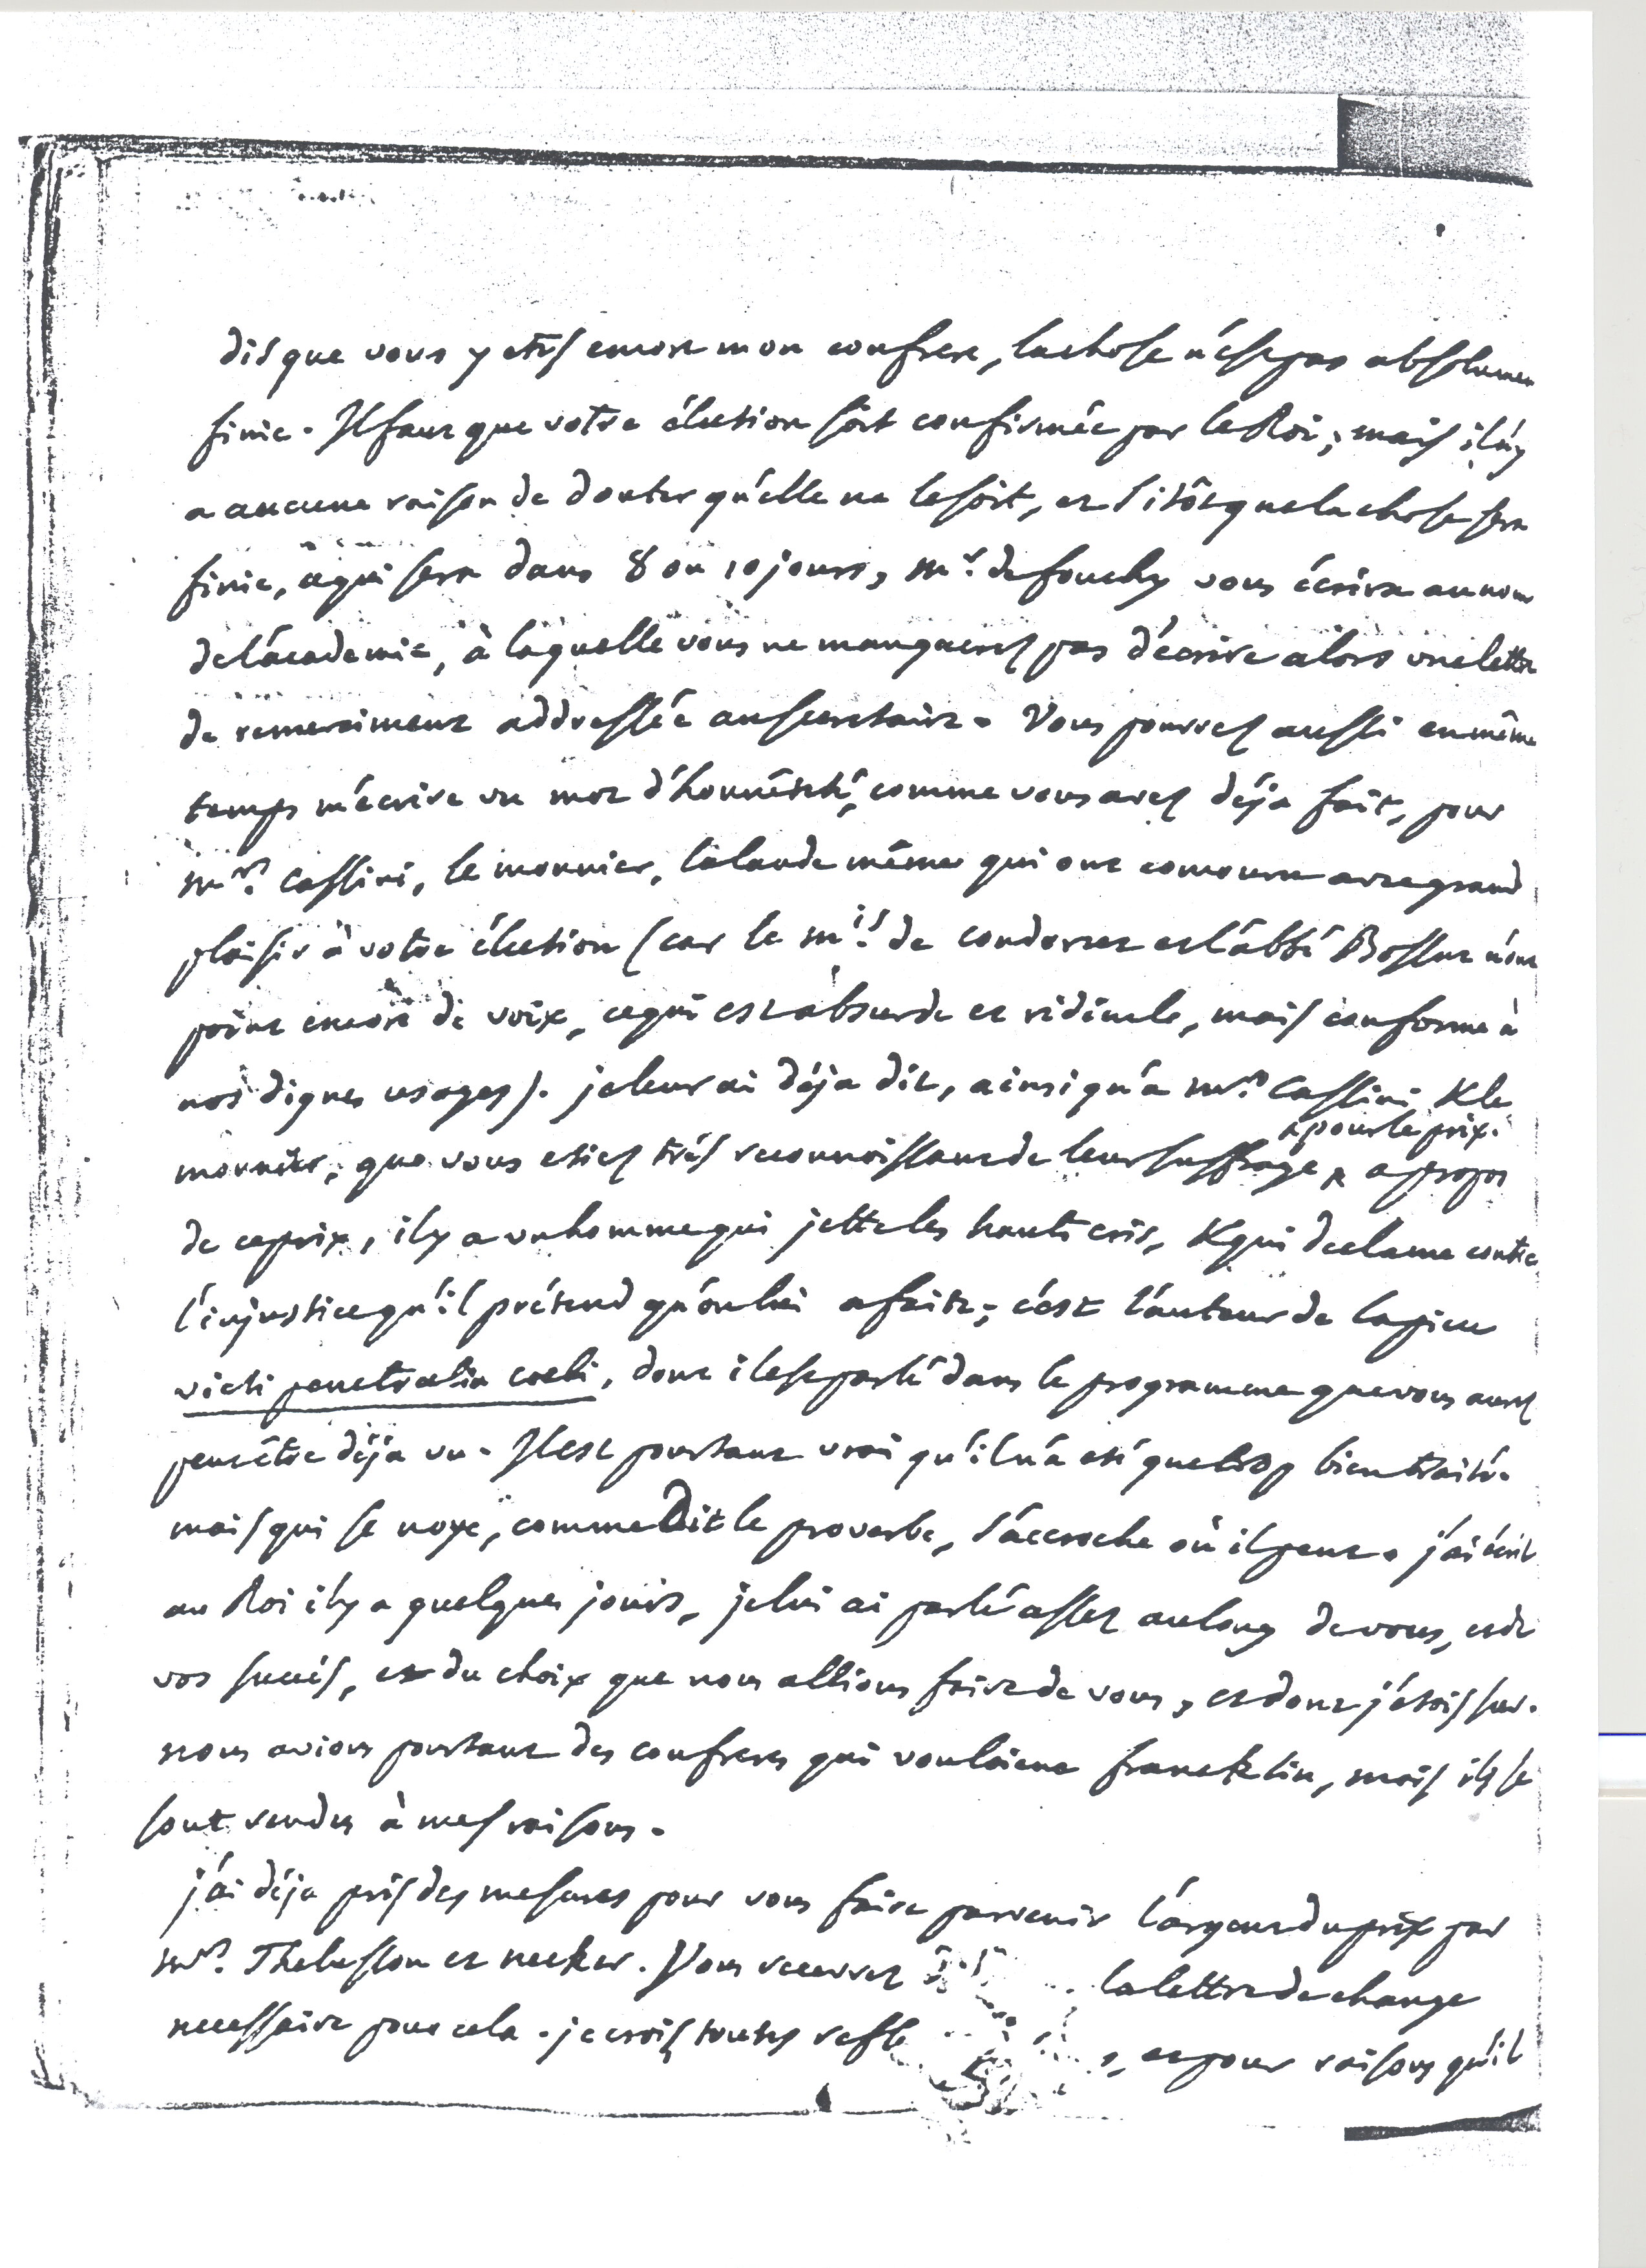 dis que vous y etes encore mon confrere, la chose n'est pas absolumen
finie. Il faut que votre élection soit confirmée par le Roi; mais il n'y
a aucune raison de douter qu'elle ne le soit, et sitôt que la chose sera
finie, ce qui sera dans 8 ou 10 jours, mr. de fouchy vous écrira au nom
de l'academie, à laquelle vous ne manquerez pas d'écrire alors une lettre
de remerciment addressée au secretaire. Vous pourrez aussi en même
temps m'écrire un mot d'honnêteté, comme vous avez déja fait, pour
mrs. Cassini, le monnier, lalande même qui ont concouru avec grand
plaisir à votre élection (car le mis. de condorcet et l'abbé Bossut n'ont
point encore de voix, ce qui est absurde et ridicule, mais conforme à
nos dignes usages). je leur ai déja dit, ainsi qu'a mrs. Cassini & le
^ pour le prix.
monnier, que vous etiez très reconnoissant de leur suffrage ^ a propos
de ce prix, il y a un homme qui jette les hauts cris, & qui declame contre
l'injustice qu'il prétend qu'on lui a faite; c'est l'auteur de la piece
victi penetralia coeli, dont il est parlé dans le programme que vous aurez
peut être déja vu. Il est pourtant vrai qu'il n'a eté que trop bien traité.
mais qui se noye, comme Dit le proverbe, s'accroche où il peut. j'ai écrit
au Roi il y a quelques jours, je lui ai parlé assez au long de vous, et de
vos succès, et du choix que nous allions faire de vous, et dont j'etois sur.
nous avions pourtant des confreres qui vouloient francklin, mais ils se
sont rendus à mes raisons.
j'ai déja pris des mesures pour vous faire parvenir l'argent du prix par
mrs. Thelusson et necker. Vous recevrez la lettre de change
necessaire pour cela. je crois toutes , et pour raisons qu'il